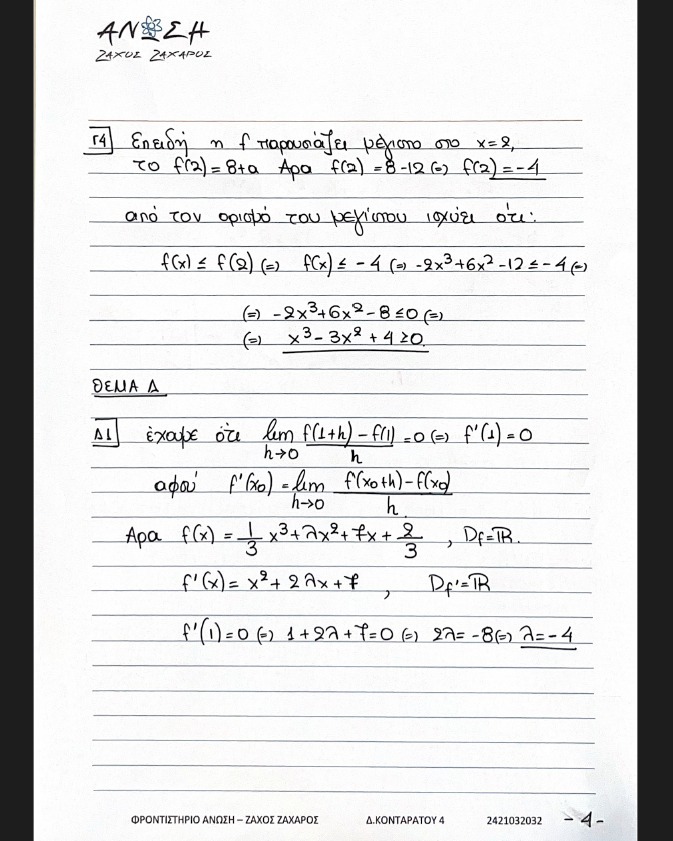 ΑΝΩΣΗ
ΖΑΧΟΣ ΖΑΧΑΡΟΣ
Γ4 Επειδή η f παρουσιάζει μέγιστο στο x=2,
το f(2)=8+a Άρα f(2)=8-12 (=) f(2)=-4
από τον ορισμό του μεγίστου ισχύει ότι:
f(x) ≤ f(2) (=) f(x) ≤ -4 (=) -2x³+6x²-12 ≤ -4 (=)
(=) -2x³+6x²-8 ≤ 0 (=)
(=) x³-3x²+4 ≥ 0.
ΘΕΜΑ Δ
Δ1 έχουμε ότι lim h→0 f(1+h)-f(1)/h =0 (=) f'(1)=0
αφού f'(x₀)=lim h→0 f(x₀+h)-f(x₀)/h.
Άρα f(x)=1/3 x³+λx²+7x+2/3, Df=ℝ.
f'(x)=x²+2λx+7, Df'=ℝ
f'(1)=0 (=) 1+2λ+7=0 (=) 2λ=-8 (=) λ=-4
ΦΡΟΝΤΙΣΤΗΡΙΟ ΑΝΩΣΗ – ΖΑΧΟΣ ΖΑΧΑΡΟΣ Δ.ΚΟΝΤΑΡΑΤΟΥ 4 2421032032 -4-